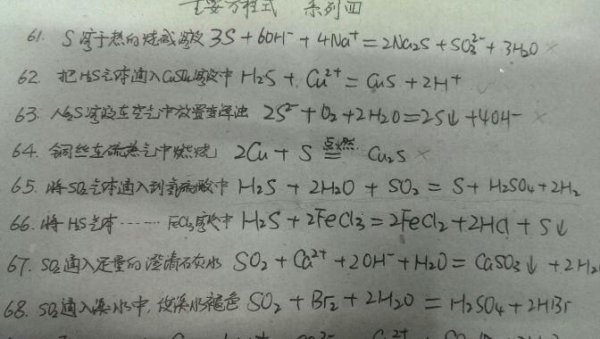 重要方程式 系列四
61. S溶于热的烧碱溶液 3S+6OH⁻+4Na⁺=2Na₂S+SO₃²⁻+3H₂O ×
62. 把H₂S气体通入CuSO₄溶液中 H₂S+Cu²⁺=CuS+2H⁺
63. Na₂S溶液在空气中放置变浑浊 2S²⁻+O₂+2H₂O=2S↓+4OH⁻ ×
64. 铜丝在硫蒸气中燃烧 2Cu+S 点燃= Cu₂S ×
65. 将SO₂气体通入到氢硫酸中 H₂S+2H₂O+SO₂=S+H₂SO₄+2H₂
66. 将H₂S气体……FeCl₃溶液中 H₂S+2FeCl₃=2FeCl₂+2HCl+S↓
67. SO₂通入足量的澄清石灰水 SO₂+Ca²⁺+2OH⁻+H₂O=CaSO₃↓+2H₂
68. SO₂通入溴水中,使溴水褪色 SO₂+Br₂+2H₂O=H₂SO₄+2HBr